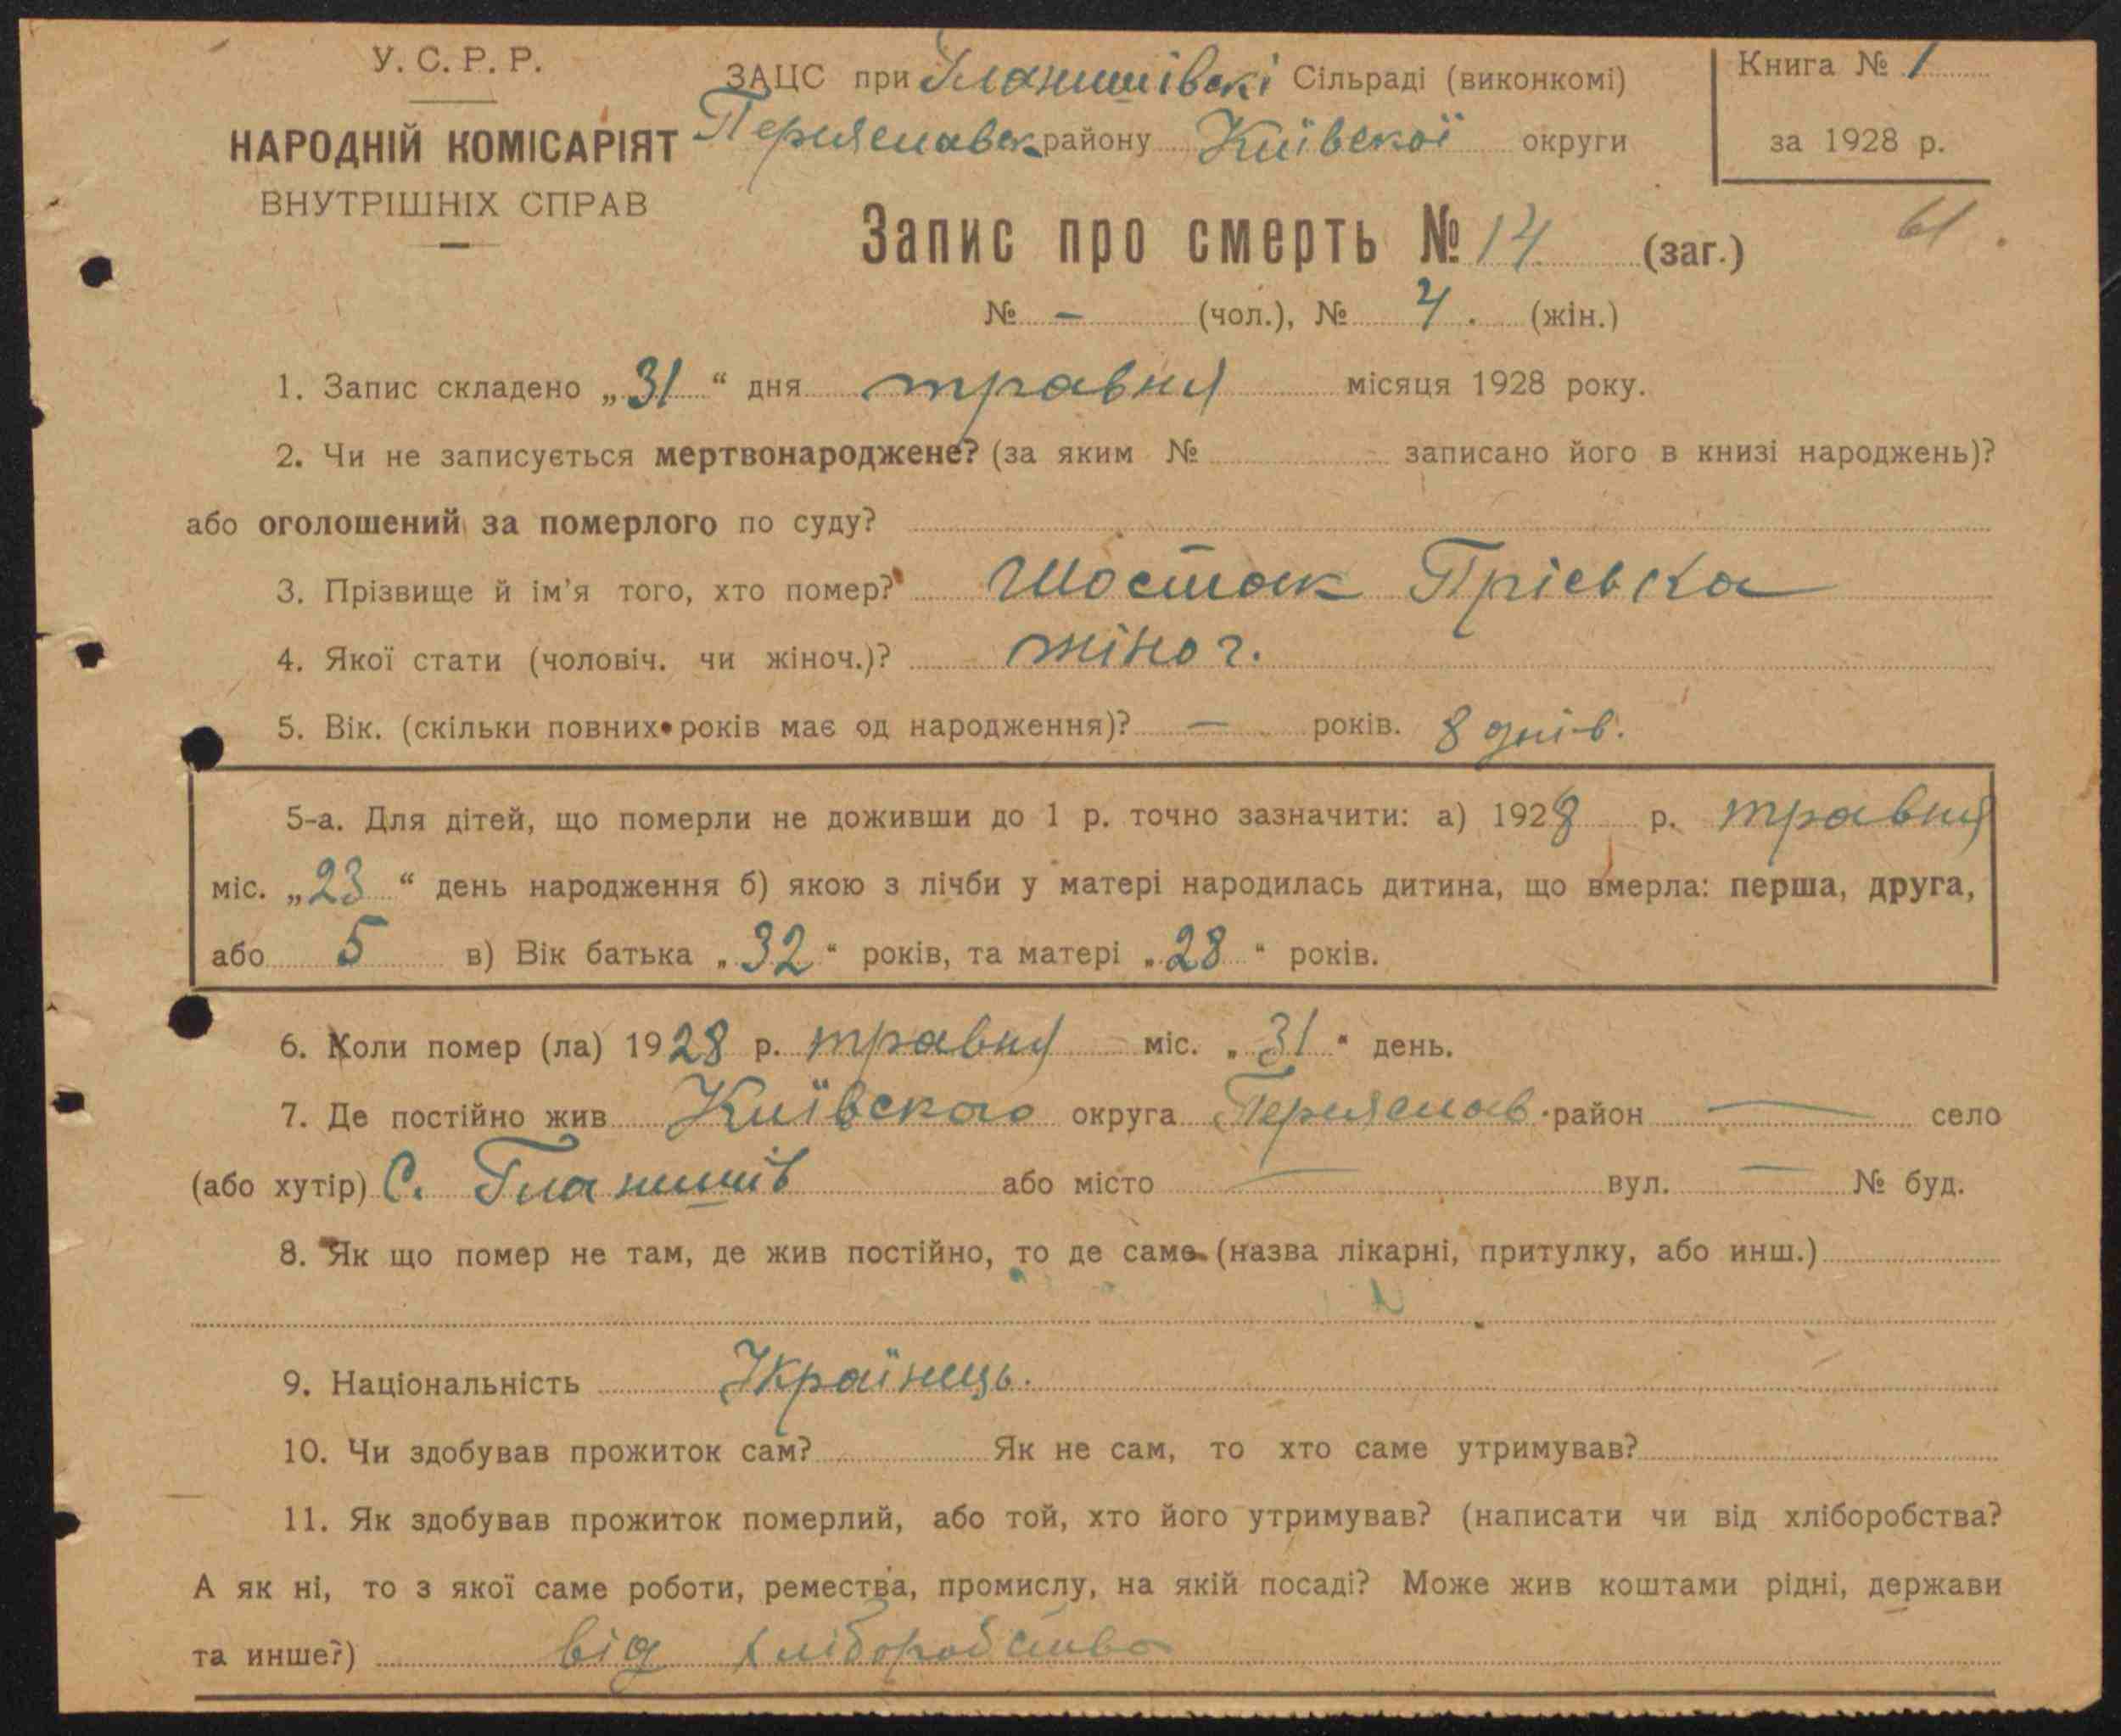 У. С. Р. Р.
НАРОДНІЙ КОМІСАРІЯТ
ВНУТРІШНІХ СПРАВ
ЗАЦС при Гланишівскі Сільраді (виконкомі)
Переяславск району Київскої округи
Книга № 1
за 1928 р.
61
Запис про смерть № 14 (заг.)
№ — (чол.), № 4. (жін.)
1. Запис складено „31“ дня травня місяця 1928 року.
2. Чи не записується мертвонароджене? (за яким № записано його в книзі народжень)?
або оголошений за померлого по суду?
3. Прізвище й ім'я того, хто помер? Шостак Прісвка
4. Якої стати (чоловіч. чи жіноч.)? жіноч.
5. Вік. (скільки повних років має од народження)? — років. 8 днів.
5-а. Для дітей, що померли не доживши до 1 р. точно зазначити: а) 1928 р. травня
міс. „23“ день народження б) якою з лічби у матері народилась дитина, що вмерла: перша, друга,
або 5 в) Вік батька „32“ років, та матері „28“ років.
6. Коли помер (ла) 1928 р. травня міс. „31“ день.
7. Де постійно жив Київскао округа Переяслав. район — село
(або хутір) С. Гланишів або місто — вул. — № буд.
8. Як що помер не там, де жив постійно, то де саме (назва лікарні, притулку, або инш.)
9. Національність Українець.
10. Чи здобував прожиток сам? Як не сам, то хто саме утримував?
11. Як здобував прожиток померлий, або той, хто його утримував? (написати чи від хліборобства?
А як ні, то з якої саме роботи, ремества, промислу, на якій посаді? Може жив коштами рідні, держави
та инше?) від хліборобства